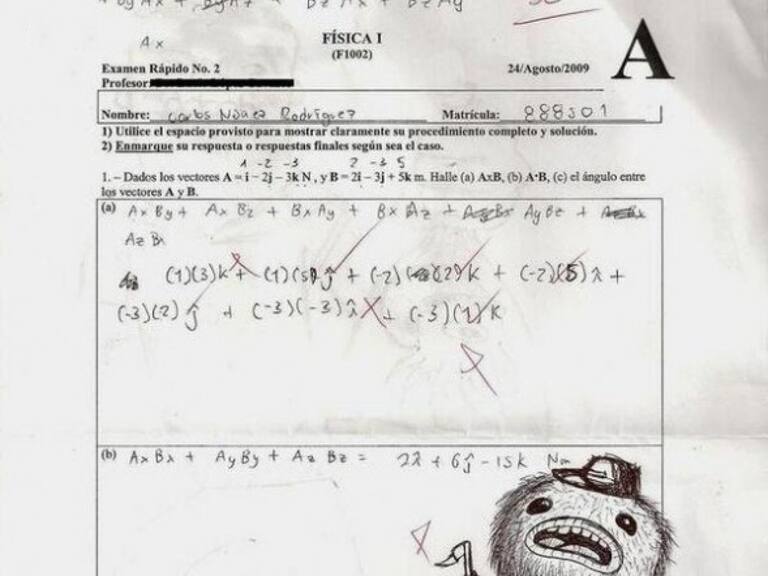 A x
FÍSICA I
(F1002)
A
Examen Rápido No. 2
24/Agosto/2009
Profesor:
Nombre: Carlos Núñez Rodríguez Matrícula: 888501
1) Utilice el espacio provisto para mostrar claramente su procedimiento completo y solución.
2) Enmarque su respuesta o respuestas finales según sea el caso.
1 -2 -3 2 -3 5
1.– Dados los vectores A = i – 2j – 3k N , y B = 2i – 3j + 5k m. Halle (a) AxB, (b) A·B, (c) el ángulo entre
los vectores A y B.
(a) Ax By + Ax Bz + Bx Ay + Bx Az + Ay Bz +
Az Bx
(1)(3)k + (1)(5) ĵ + (-2) (2) k + (-2)(5) î +
(-3)(2) ĵ + (-3)(-3) î + (-3)(1) k
(b) Ax Bx + Ay By + Az Bz = 2î + 6ĵ - 15k Nm